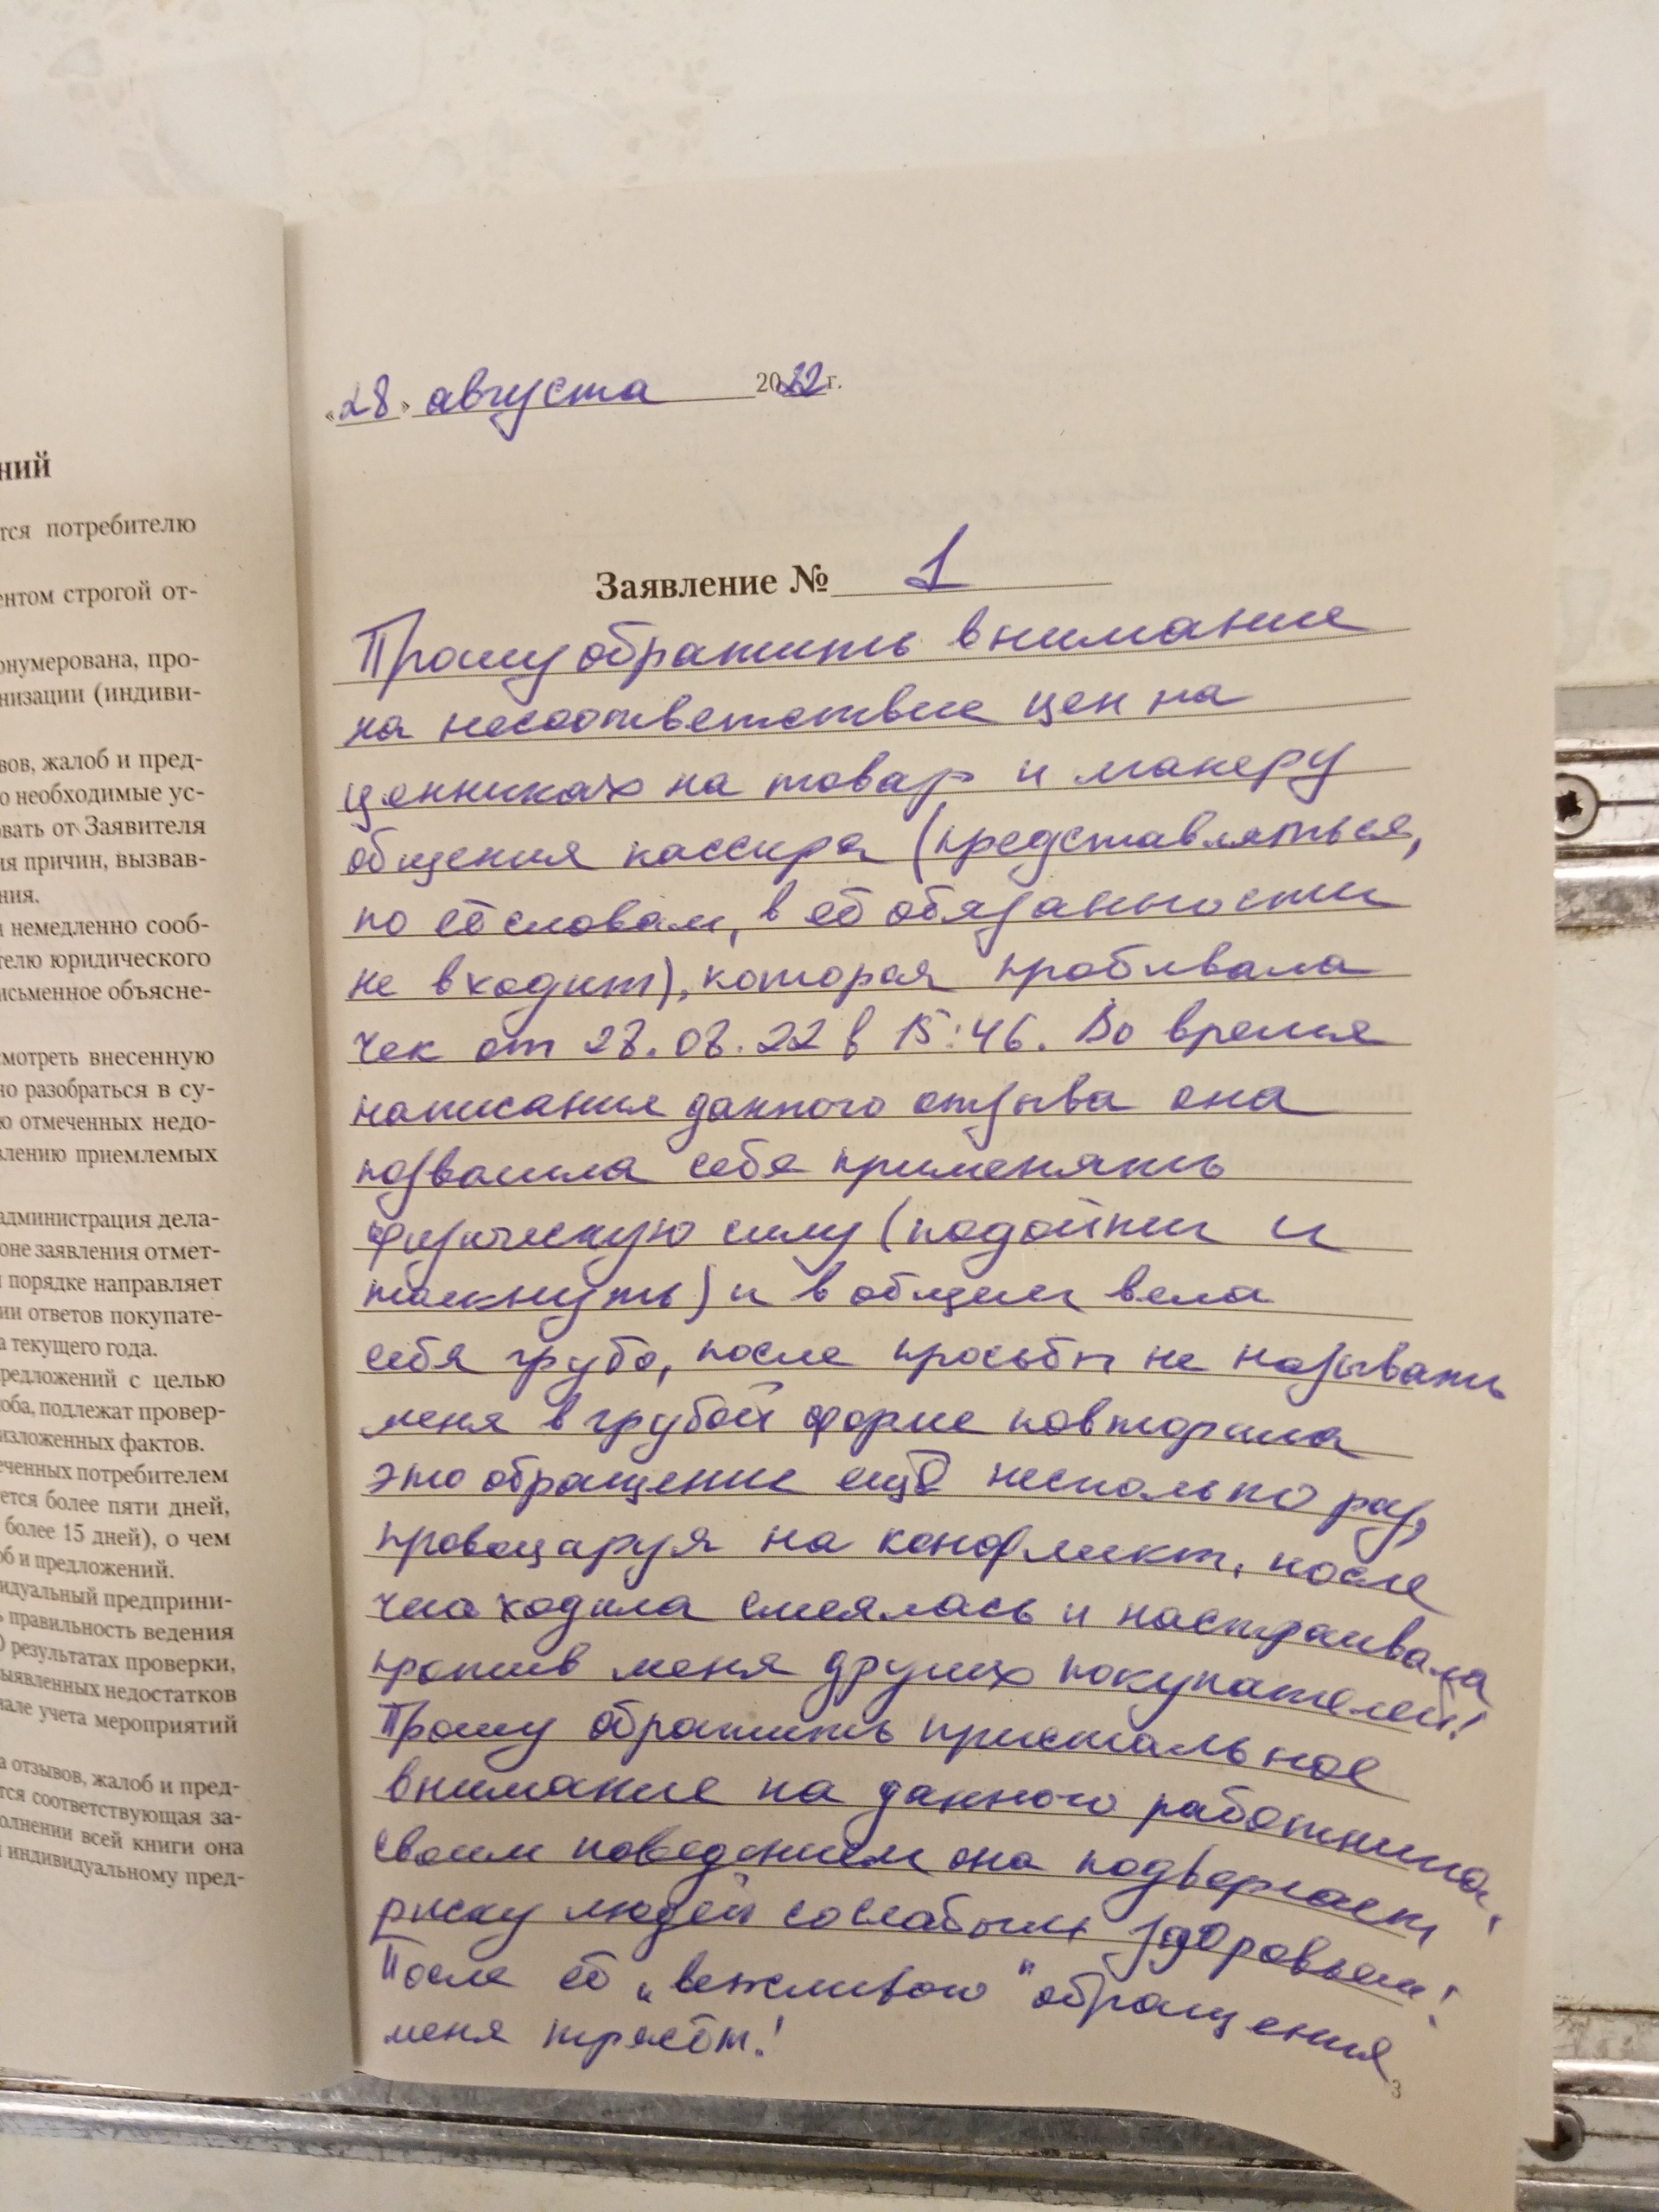 ний
тся потребителю
ентом строгой от-
онумерована, про-
низации (индиви-
вов, жалоб и пред-
о необходимые ус-
овать от Заявителя
ия причин, вызвав-
ния.
немедленно сооб-
телю юридического
исьменное объясне-
смотреть внесенную
но разобраться в су-
ю отмеченных недо-
влению приемлемых
администрация дела-
оне заявления отмет-
порядке направляет
ии ответов покупате-
а текущего года.
редложений с целью
оба, подлежат провер-
изложенных фактов.
еченных потребителем
ется более пяти дней,
более 15 дней), о чем
об и предложений.
идуальный предприни-
ь правильность ведения
О результатах проверки,
выявленных недостатков
нале учета мероприятий
а отзывов, жалоб и пред-
тся соответствующая за-
олнении всей книги она
индивидуальному пред-
«28» августа 2022 г.
Заявление № 1
Прошу обратить внимание
на несоответствие цен на
ценниках на товар и манеру
общения кассира (представляться,
по её словам, в её обязанности
не входит), которая пробивала
чек от 28.08.22 в 15:46. Во время
написания данного отзыва она
позволила себе применять
физическую силу (подойти и
толкнуть) и в общем вела
себя грубо, после просьбы не называть
меня в грубой форме повторила
это обращение ещё несколько раз,
провоцируя на конфликт, после
чего ходила смеялась и настраивала
против меня других покупателей!
Прошу обратить пристальное
внимание на данного работника,
своим поведением она подвергает
риску людей со слабым здоровьем!
После её „вежливого" обращения
меня трясёт!
3